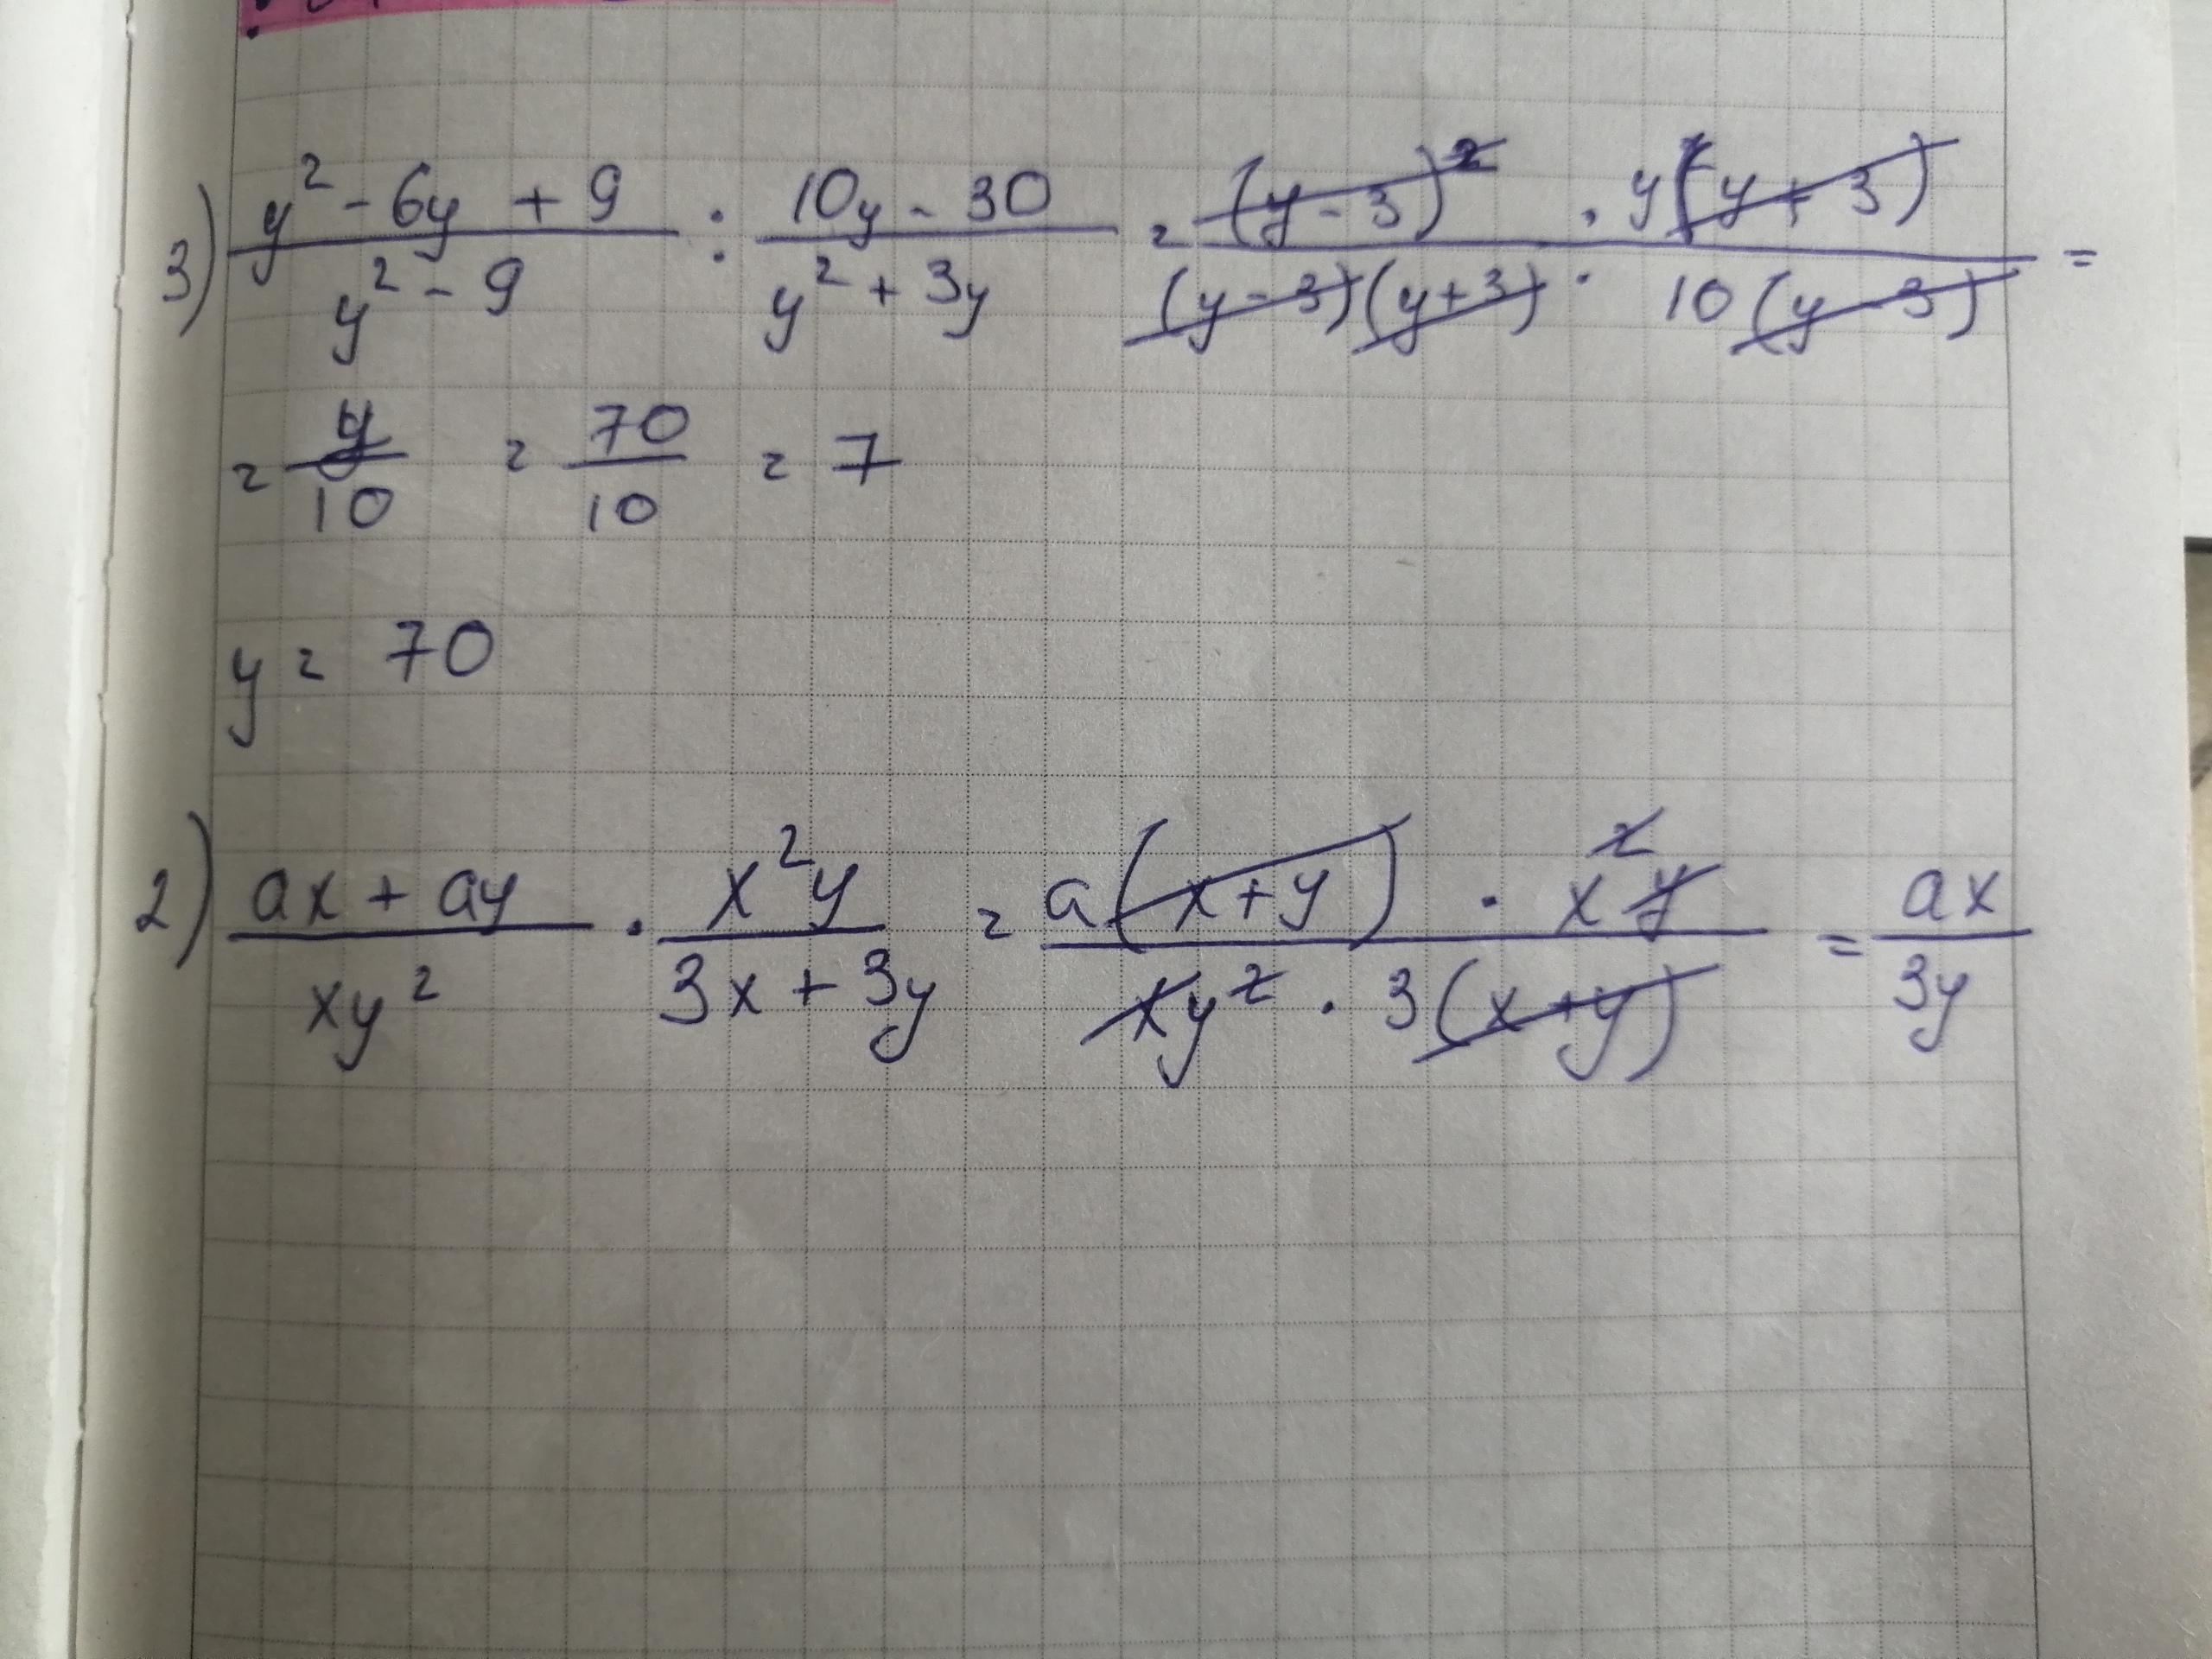 3) (y² - 6y + 9)/(y² - 9) : (10y - 30)/(y² + 3y) = ((y - 3)² · y(y + 3))/((y - 3)(y + 3) · 10(y - 3)) =
= y/10 = 70/10 = 7
y = 70
2) (ax + ay)/(xy²) · (x²y)/(3x + 3y) = (a(x + y) · x²y)/(xy² · 3(x + y)) = (ax)/(3y)